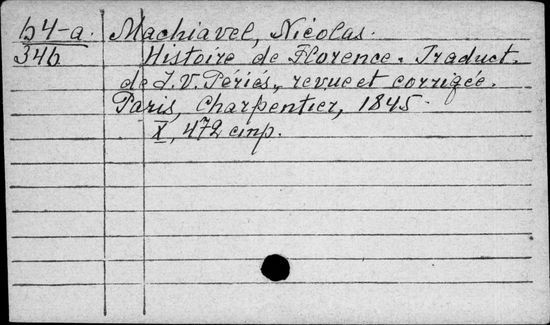 b4-a. Machiavel, Nicolas.
346 Histoire de Florence. Traduct.
de J. V. Periés, revue et corrigée.
Paris, Charpentier, 1845.
X, 472 стр.